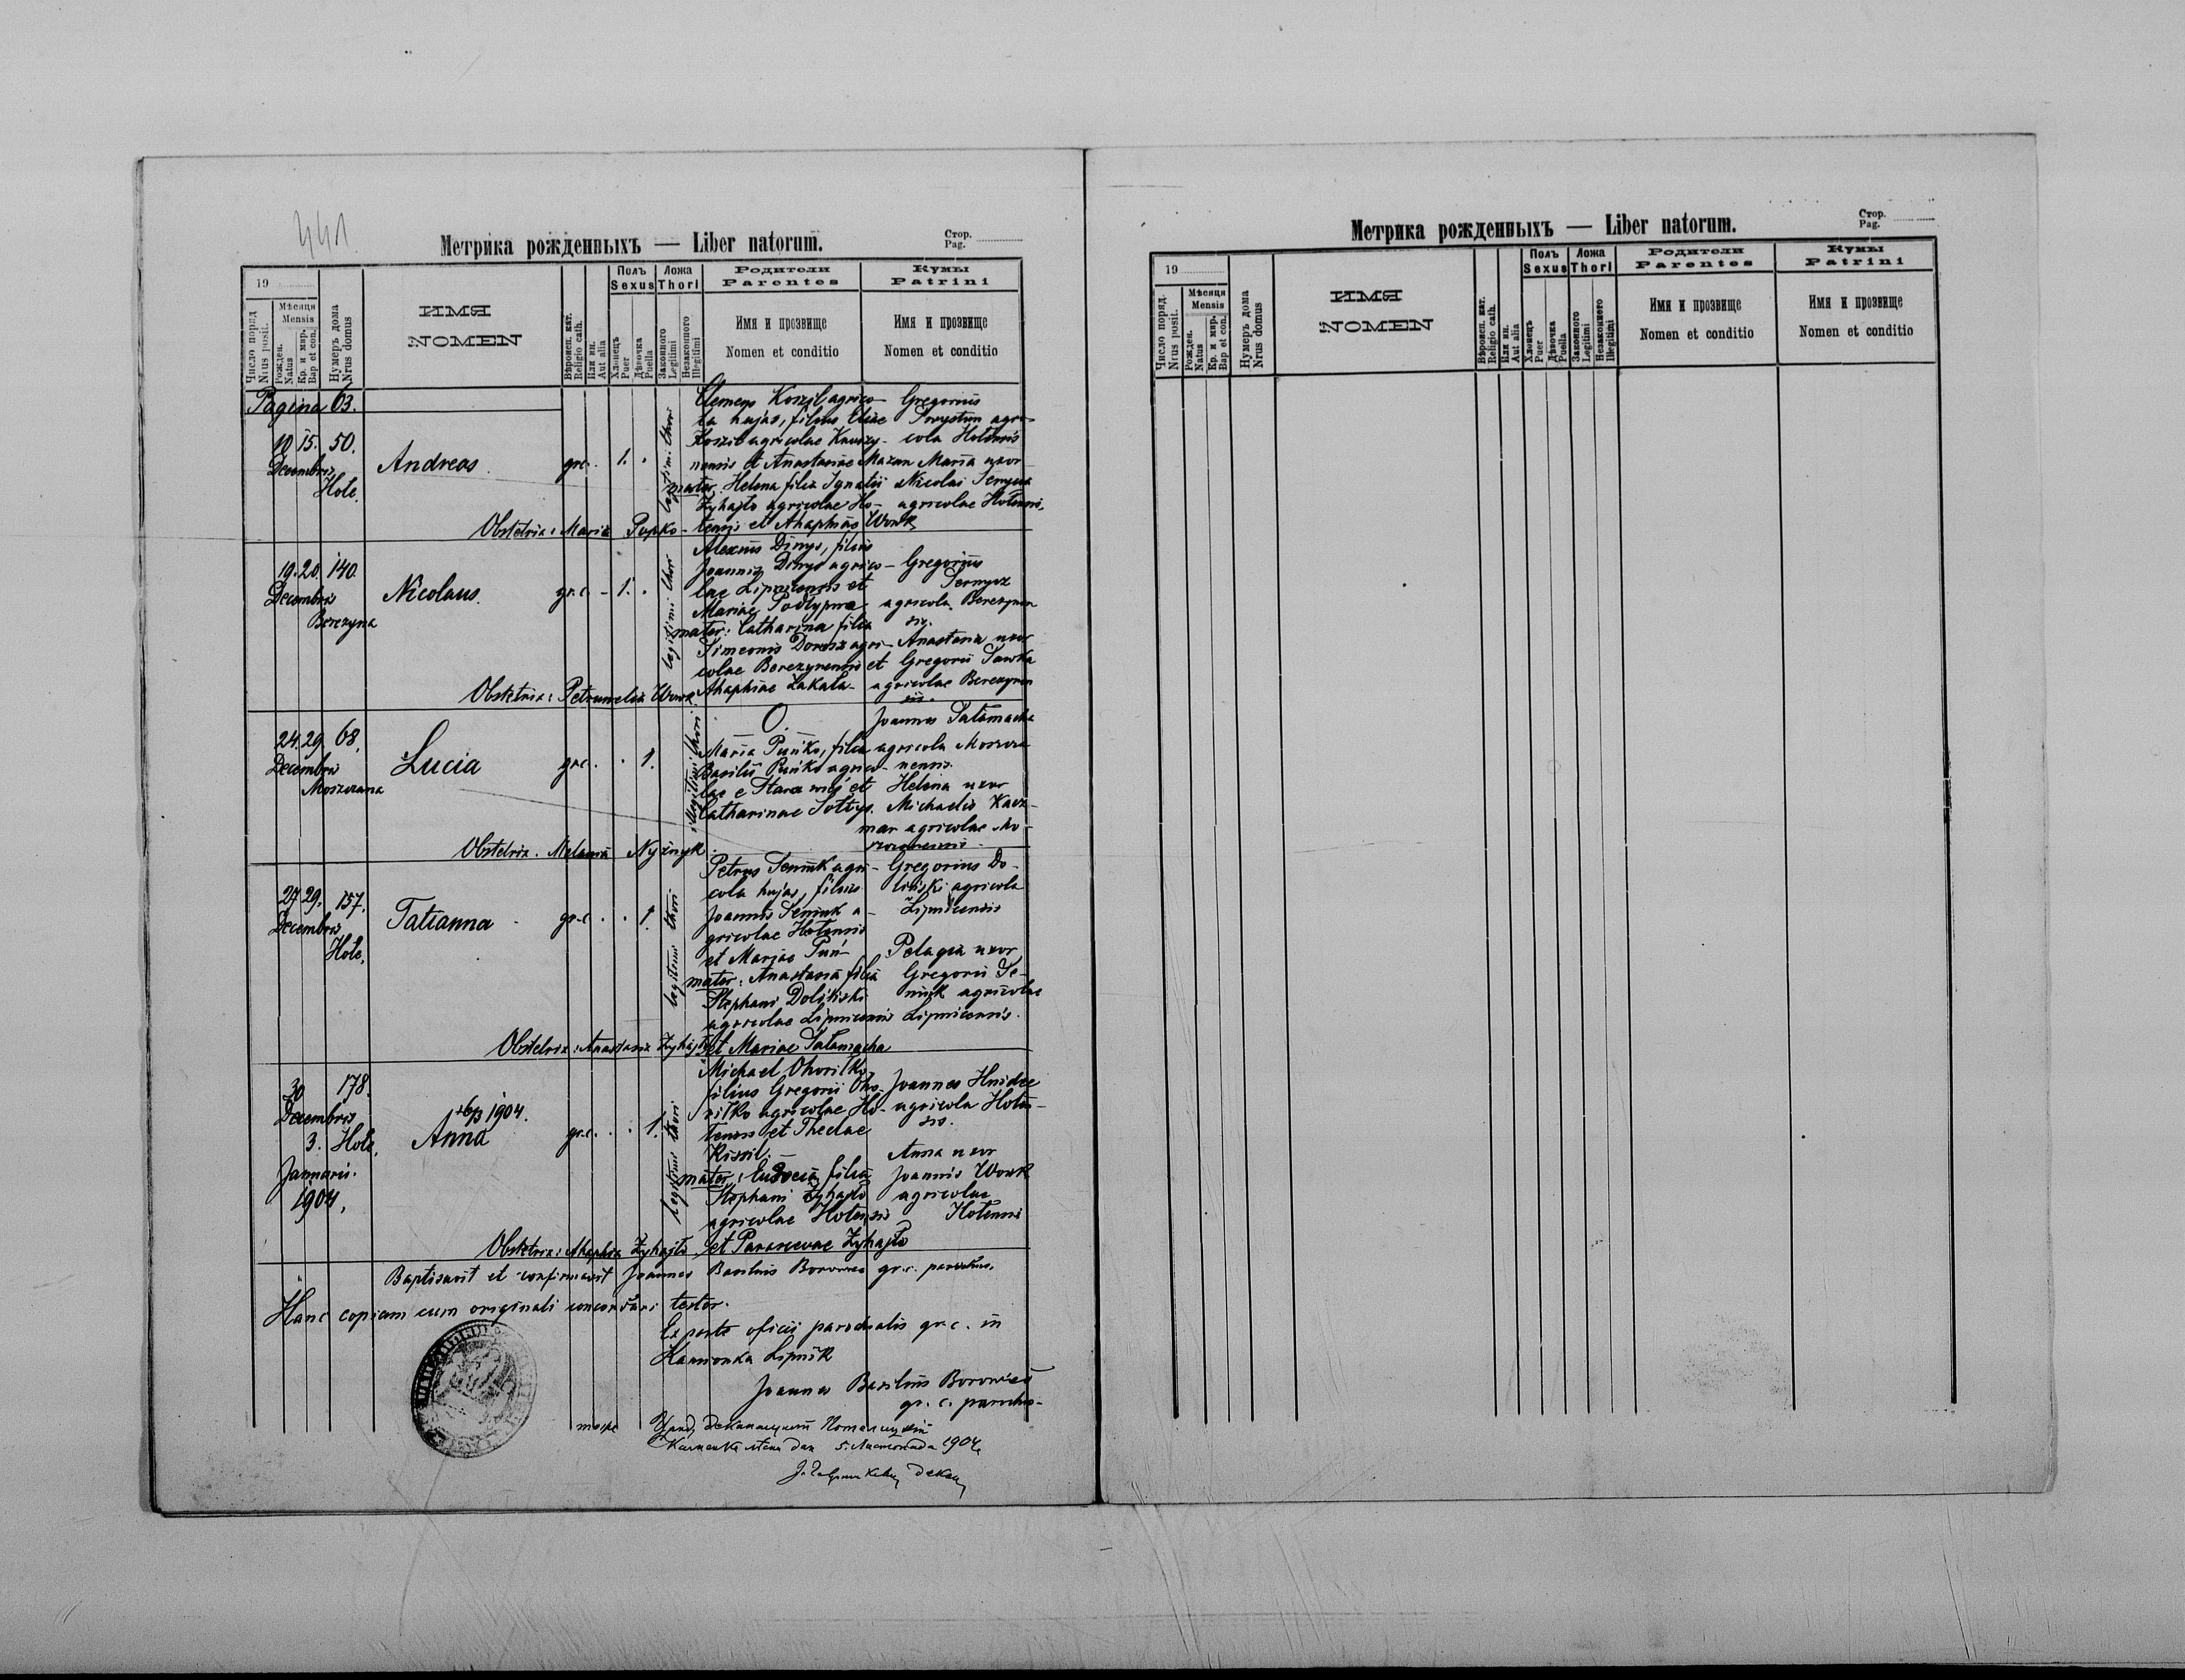 441
Метрика рожденныхъ — Liber natorum.
Стор.
Pag.
19
Число поряд
Nrus posit.
Мѣсяця
Mensis
Рожден.
Natus
Кр. и мир.
Bap et con.
Нумеръ дома
Nrus domus
ИМЯ
NOMEN
Вѣроисп. кат.
Religio cath.
Или ин.
Aut alia
Полъ
Sexus
Хлопецъ
Puer
Дѣвочка
Puella
Ложа
Thori
Законного
Legitimi
Незаконного
Illegitimi
Родители
Parentes
Имя и прозвище
Nomen et conditio
Кумы
Patrini
Имя и прозвище
Nomen et conditio
Pagina 63.
10 15. 50.
Decembris
Hole.
Andreas
gr.c. 1.
legitimi thori
Clemens Koszil agrico-
la hujas, filius Eliae
Koszil agricolae
nensis et Anastasiae Mazur
mater. Helena filia Ignatii
Zyhajło agricolae Ho-
tensis et Ahaphias Wowk
Gregorius
agri-
cola Hotensis
Maria uxor
Nicolai
agricolae Hotensis.
Obstetrix: Maria Popko
19. 20. 140.
Decembris
Berezyna
Nicolaus.
gr.c. - 1.
legitimi thori
Alexius Dinys, filius
Joannis Dinys agrico-
lae Lipnicensis et
Mariae
mater: Catharina filia
Simeonis Dorosz agri-
colae Berezynensis et
Ahaphiae Zakala
Gregorius
agricola Berezynen
sis.
Anastasia uxor
Gregorii Sawka
agricolae Berezynen
sis.
Obstetrix: Petrunelia Wowk
24. 29. 68.
Decembris
Moszczana
Lucia
gr.c. 1.
illegitimi thori
O.
Maria Puńko, filia
Basilii Puńko agrico-
lae e Stara wieś et
Catharinae Sołtys.
Joannes Tałamacha
agricola Moszcza
nensis.
Helena uxor
Michaelis Kacz-
mar agricolae Mo-
Obstetrix. Melania Nyżnyk.
27 29. 157.
Decembris
Hole.
Tatianna
gr.c. 1.
legitimi thori
Petrus Seniuk agri-
cola hujas, filius
Joannis Seniuk a-
gricolae Hotensis
et Mariae Puń-
mater: Anastasia filia
Stephani Dolinski
agricolae Lipnicensis
et Mariae Tałamacha
Gregorius Do-
linski agricola
Lipnicensis
Pelagia uxor
Gregorii Se-
niuk agricolae
Lipnicensis.
Obstetrix: Anastasia Zyhajło
30 178.
Decembris
3. Hole.
Januarii.
1904.
1904.
Anna
gr.c. 1.
legitimi thori
Michael Ohorilko,
filius Gregorii Oho-
rilko agricolae Ho-
tensis et Theclae
Kissil.
mater: Eudocia filia
Stephani Zyhajło
agricolae Hotensis
et Parascevae Zyhajło
Joannes Hnidec
agricola Hoten-
sis.
Anna uxor
Joannis Wowk
agricolae
Hotensis
Obstetrix: Ahaphia Zyhajło
Baptisavit et confirmavit Joannes Basilius Borowiec gr.c. parochus.
Hanc copiam cum originali concordari testor.
Ex parte oficii parochialis gr.c. in
Kamionka Lipnik
Joannes Basilius Borowiec
gr. c. parochus-
1904
декан
Метрика рожденныхъ — Liber natorum.
Стор.
Pag.
19
Число поряд.
Nrus posit.
Мѣсяця
Mensis
Рожден.
Natus
Кр. и мир.
Bap et con.
Нумеръ дома
Nrus domus
ИМЯ
NOMEN
Вѣроисп. кат.
Religio cath.
Или ин.
Aut alia
Полъ
Sexus
Хлопецъ
Puer
Дѣвочка
Puella
Ложа
Thori
Законного
Legitimi
Незаконного
Illegitimi
Родители
Parentes
Имя и прозвище
Nomen et conditio
Кумы
Patrini
Имя и прозвище
Nomen et conditio